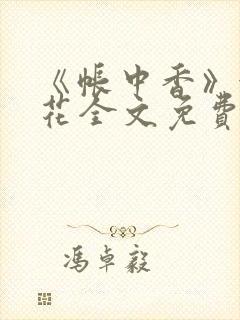 《帐中香》
花全文免费
冯卓毅